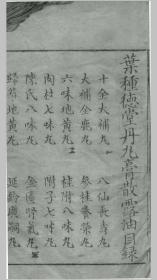 葉種德堂丹丸膏散露油目錄
十全大補丸
八仙長壽丸
大補全鹿丸
參桂養榮丸
六味地黃丸
桂附八味丸
陶杜七味丸
附子七味丸
陳氏八味丸
金匱腎氣丸
地黃丸
延齡廣嗣丸